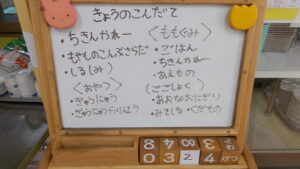 きょうのこんだて
・ちきんかれー
・もやしのこんぶさらだ
・しる(み)
〈おやつ〉
・ぎゅうにゅう
・ぎゅうにゅう
〈ももぐみ〉
・ごはん
・ちきんかれー
・あえもの
(ごごしょく)
・あおなおにぎり
・みそしる ・くだもの
8 0
0 3 2 4 がつ